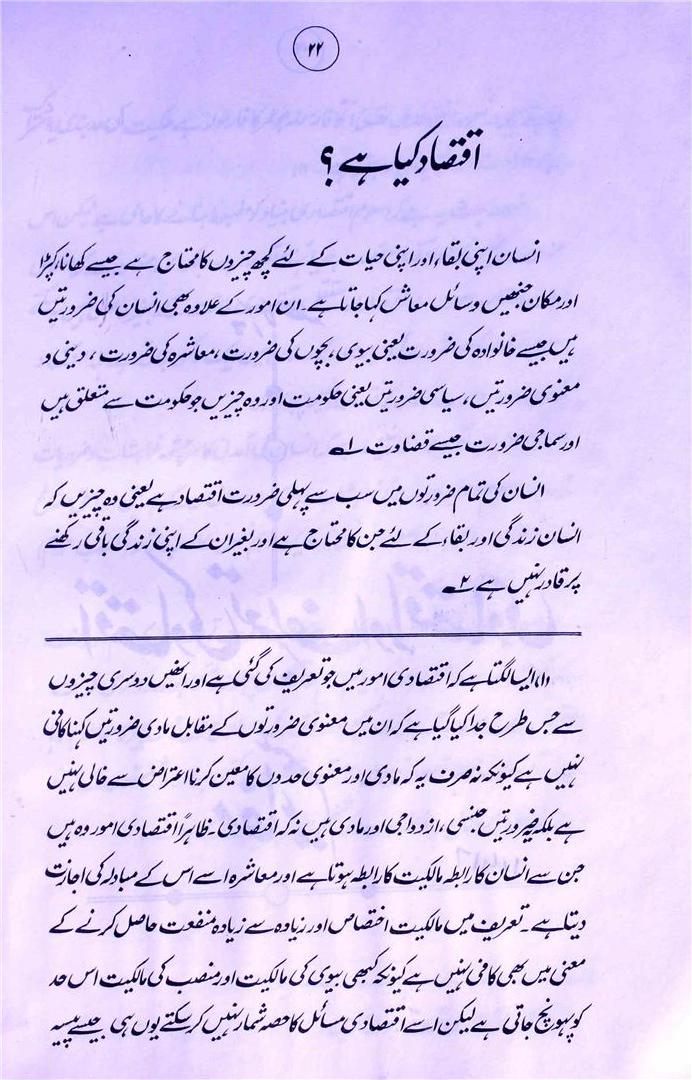 ۲۲
اقتصاد کیا ہے ؟
انسان اپنی بقاء اور اپنی حیات کے لئے کچھ چیزوں کا محتاج ہے جیسے کھانا، کپڑا
اور مکان جنھیں وسائل معاش کہا جاتا ہے۔ ان امور کے علاوہ بھی انسان کی ضرورتیں
ہیں جیسے خانوادہ کی ضرورت یعنی بیوی، بچوں کی ضرورت، معاشرہ کی ضرورت، دینی و
معنوی ضرورتیں، سیاسی ضرورتیں یعنی حکومت اور وہ چیزیں جو حکومت سے متعلق ہیں
اور سماجی ضرورت جیسے قضاوت ۱ـ
انسان کی تمام ضرورتوں میں سب سے پہلی ضرورت اقتصاد ہے یعنی وہ چیزیں کہ
انسان زندگی اور بقاء کے لئے جن کا محتاج ہے اور بغیر ان کے اپنی زندگی باقی رکھنے
پر قادر نہیں ہے ۲ـ
(۱) ایسا لگتا ہے کہ اقتصادی امور میں جو تعریف کی گئی ہے اور انھیں دوسری چیزوں
سے جس طرح جدا کیا گیا ہے کہ ان میں معنوی ضرورتوں کے مقابل مادی ضرورتیں کہنا کافی
نہیں ہے کیونکہ نہ صرف یہ کہ مادی اور معنوی حدوں کا معین کرنا اعتراض سے خالی نہیں
ہے بلکہ ضرورتیں جنسی، ازدواجی اور مادی ہیں نہ کہ اقتصادی۔ ظاہراً اقتصادی امور وہ ہیں
جن سے انسان کا رابطہ مالکیت کا رابطہ ہوتا ہے اور معاشرہ اسے اس کے مبادلہ کی اجازت
دیتا ہے۔ تعریف میں مالکیت اختصاص اور زیادہ سے زیادہ منفعت حاصل کرنے کے
معنی میں بھی کافی نہیں ہے کیونکہ کبھی بیوی کی مالکیت اور منصب کی مالکیت اس حد
کو پہونچ جاتی ہے لیکن اسے اقتصادی مسائل کا حصہ شمار نہیں کر سکتے یوں ہی جیسے پیسہ